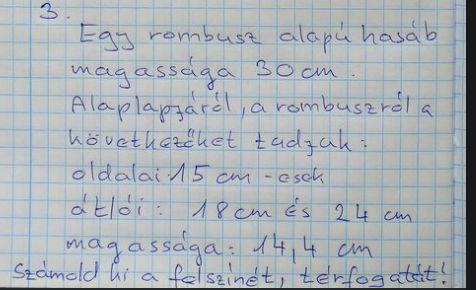 3.
Egy rombusz alapú hasáb
magassága 30 cm.
Alaplapjáról, a rombuszról a
következőket tudjuk:
oldalai 15 cm-esek
átlói: 18 cm és 24 cm
magassága: 14,4 cm
Számold ki a felszínét, térfogatát!